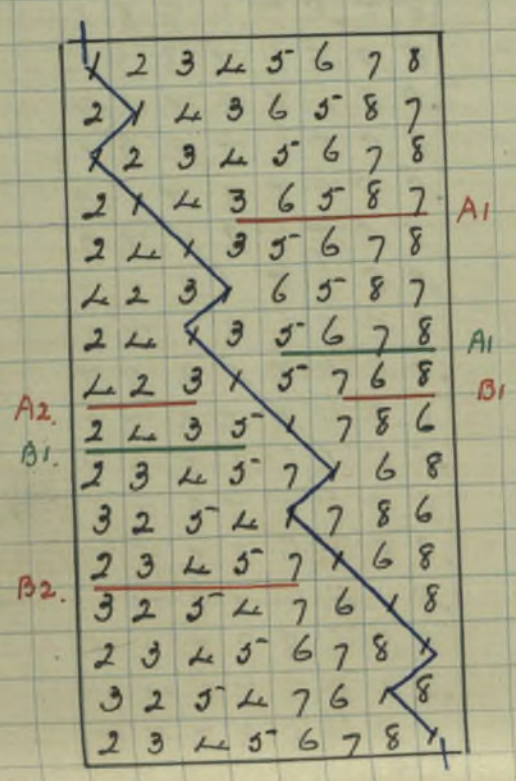 1 2 3 4 5 6 7 8
2 1 4 3 6 5 8 7
1 2 3 4 5 6 7 8
2 1 4 3 6 5 8 7 A1
2 4 1 3 5 6 7 8
4 2 3 1 6 5 8 7
2 4 1 3 5 6 7 8 A1
A2. 4 2 3 1 5 7 6 8 B1
B1. 2 4 3 5 1 7 8 6
2 3 4 5 7 1 6 8
3 2 5 4 1 7 8 6
B2. 2 3 4 5 7 1 6 8
3 2 5 4 7 6 1 8
2 3 4 5 6 7 8 1
3 2 5 4 7 6 1 8
2 3 4 5 6 7 8 1